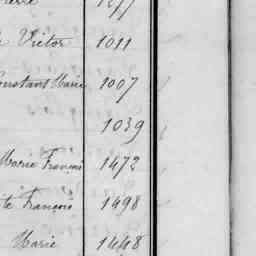 Victor 1011
Constant Marie 1007
1039
Marie François 1472
te François 1498
Marie 1448